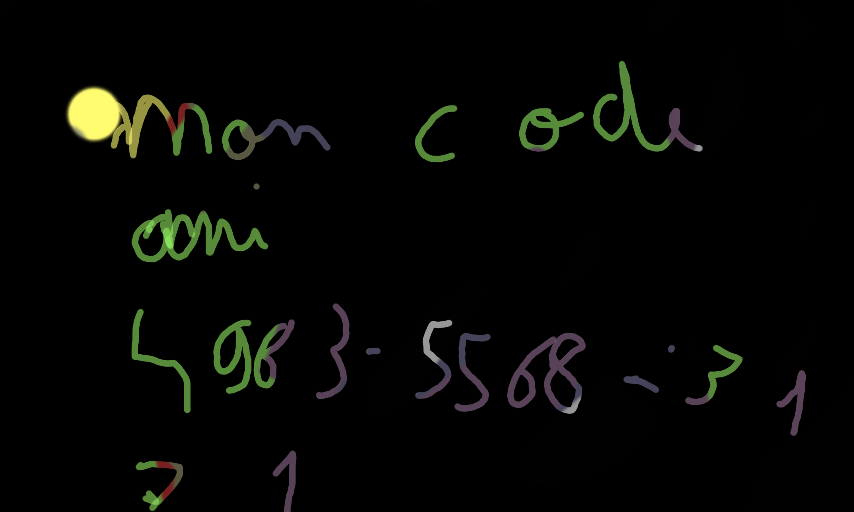 Mon code
ami
4983-5568-31
71